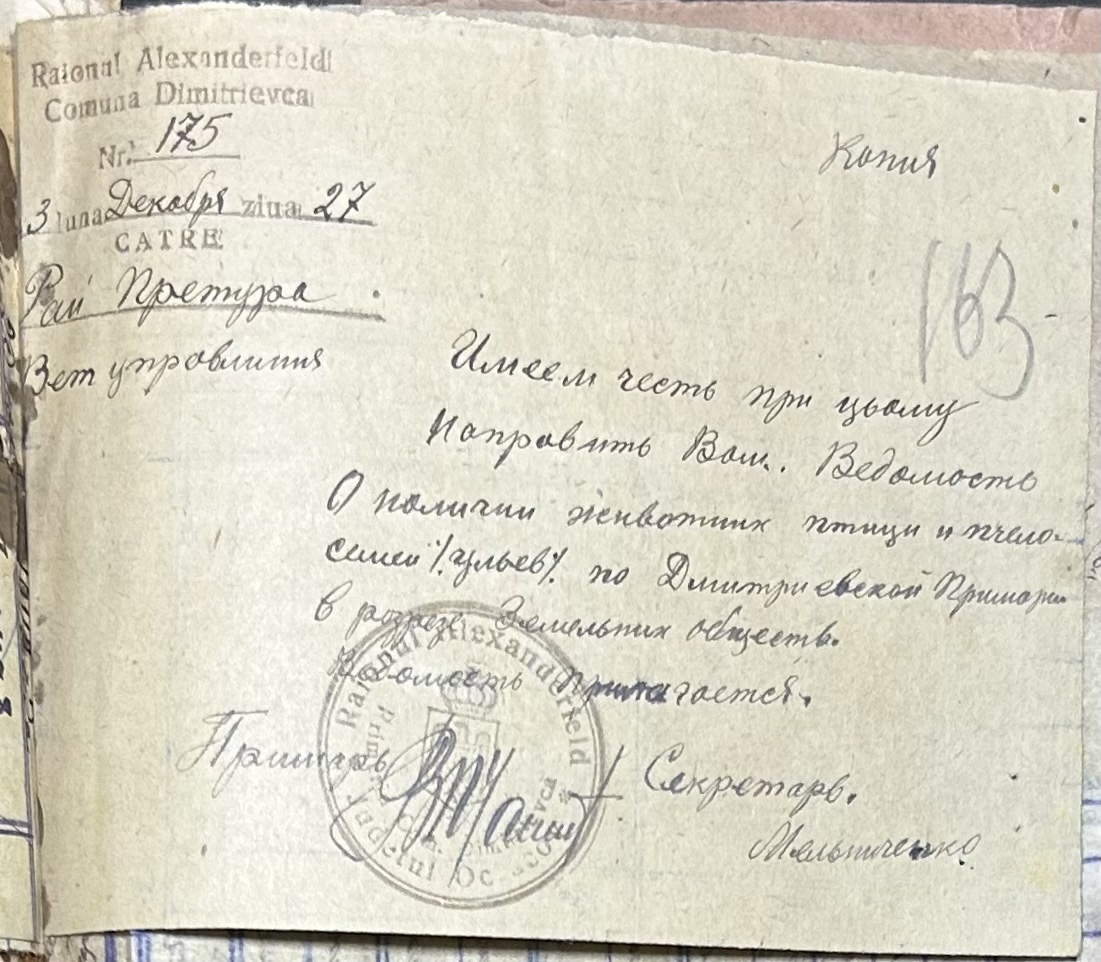 Raionul Alexanderfeld
Comuna Dimitrievca
Nr. 175
3 luna Декабря ziua 27
CATRE
Рай Претура
Вет управлиния
Копия
163
Имеем честь при цьому
Направить Вам. Ведомость
О наличии животних птици и пчело-
семей /.ульев/. по Дмитриевской Примарии
в розрезе Земельних обществ.
Ведомость Прилагается.
Примарь
Секретарь.
Мельниченко
Raionul Alexanderfeld
Judetul Oceacov